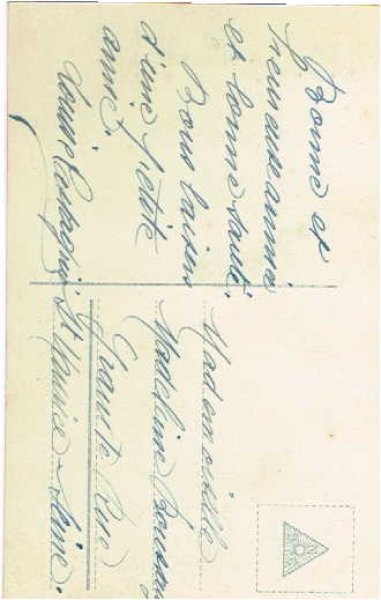 Bonne et
heureuse année
et bonne santé.
Bons baisers
d'une petite
amie.
Louise
Mademoiselle
Madeleine
Grande Rue
St Maurice Seine